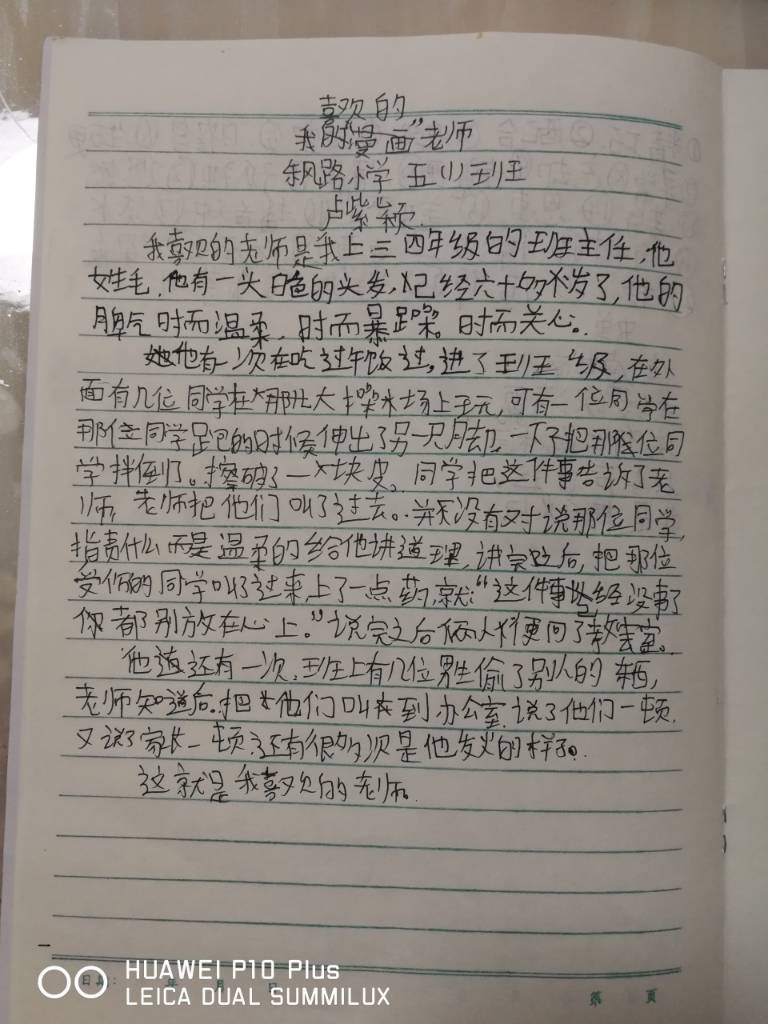 喜欢的
我的“漫画”老师
朱凤路小学 五(1)班
卢紫颖
我喜欢的老师是我上三四年级的班主任,他
姓毛,他有一头白色的头发,已经六十多岁了,他的
脾气时而温柔,时而暴躁。时而关心。
他有一次在吃过午饭过,进了班级,在外
面有几位同学在那北大操场上玩,可有一位同学在
那位同学跑的时候伸出了另一只脚,一下子把那位同
学拌倒了。擦破了一块皮。同学把这件事告诉了老
师,老师把他们叫了过去。并没有对说那位同学,
指责什么而是温柔的给他讲道理,讲完之后,把那位
受伤的同学叫了过来,上了一点药,就:“这件事已经没事了
你都别放在心上。”说完之后俩人才更回了教室。
他还有一次,班上有几位男生偷了别人的东西,
老师知道后,把他们叫到办公室,说了他们一顿,
又说了家长一顿,还有很多次是他发火的样子。
这就是我喜欢的老师。
日期: 年 月 日
第 页
HUAWEI P10 Plus
LEICA DUAL SUMMILUX